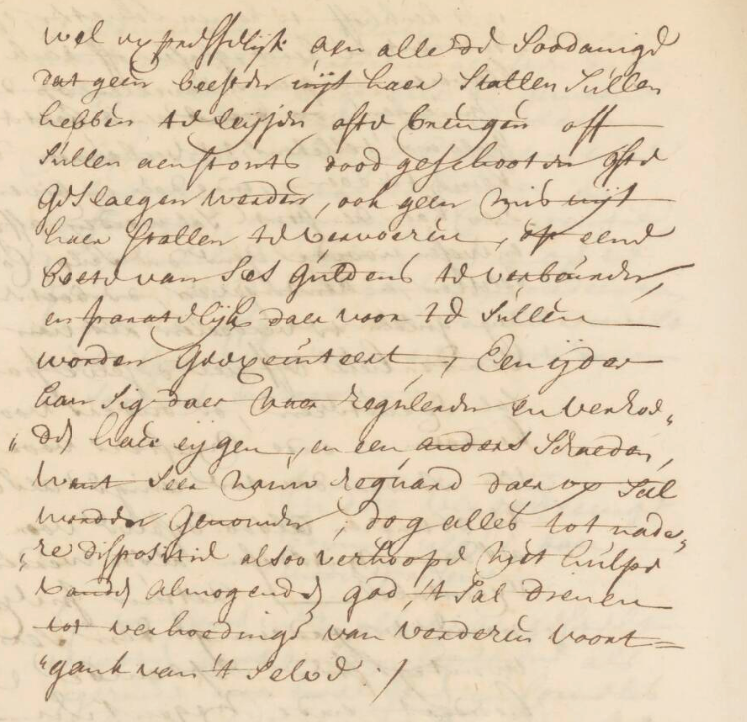 wel expresselijk aen alle de soodanige
dat geen beesten uijt haer stallen sullen
hebben te leijden ofte brengen off
sullen aenstonts dood geschooten ofte
geslaegen werden, ook geen mis uijt
haer stallen te vervoeren, op eene
boete van ses guldens te verbeuren,
en paratelijk daer voor te sullen
worden geexecuteert, Een ijder
kan sig daer naer reguleren en verhoe„
„de haer eijgen, en een anders schaeden,
want seer nauw reguard daer op sal
werden genomen, dog alles tot nade„
„re dispositie alsoo verhoopt met hulpe
vande almogende god, 't sal dienen
tot verhoedinge van verderen voort=
„gank van 't selve ./